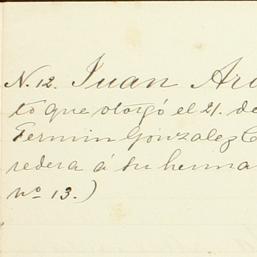 N. 12. Juan Ar
to que otorgó el 21. de
Fermin Gonzalez C
redera á su herma
nº 13.)